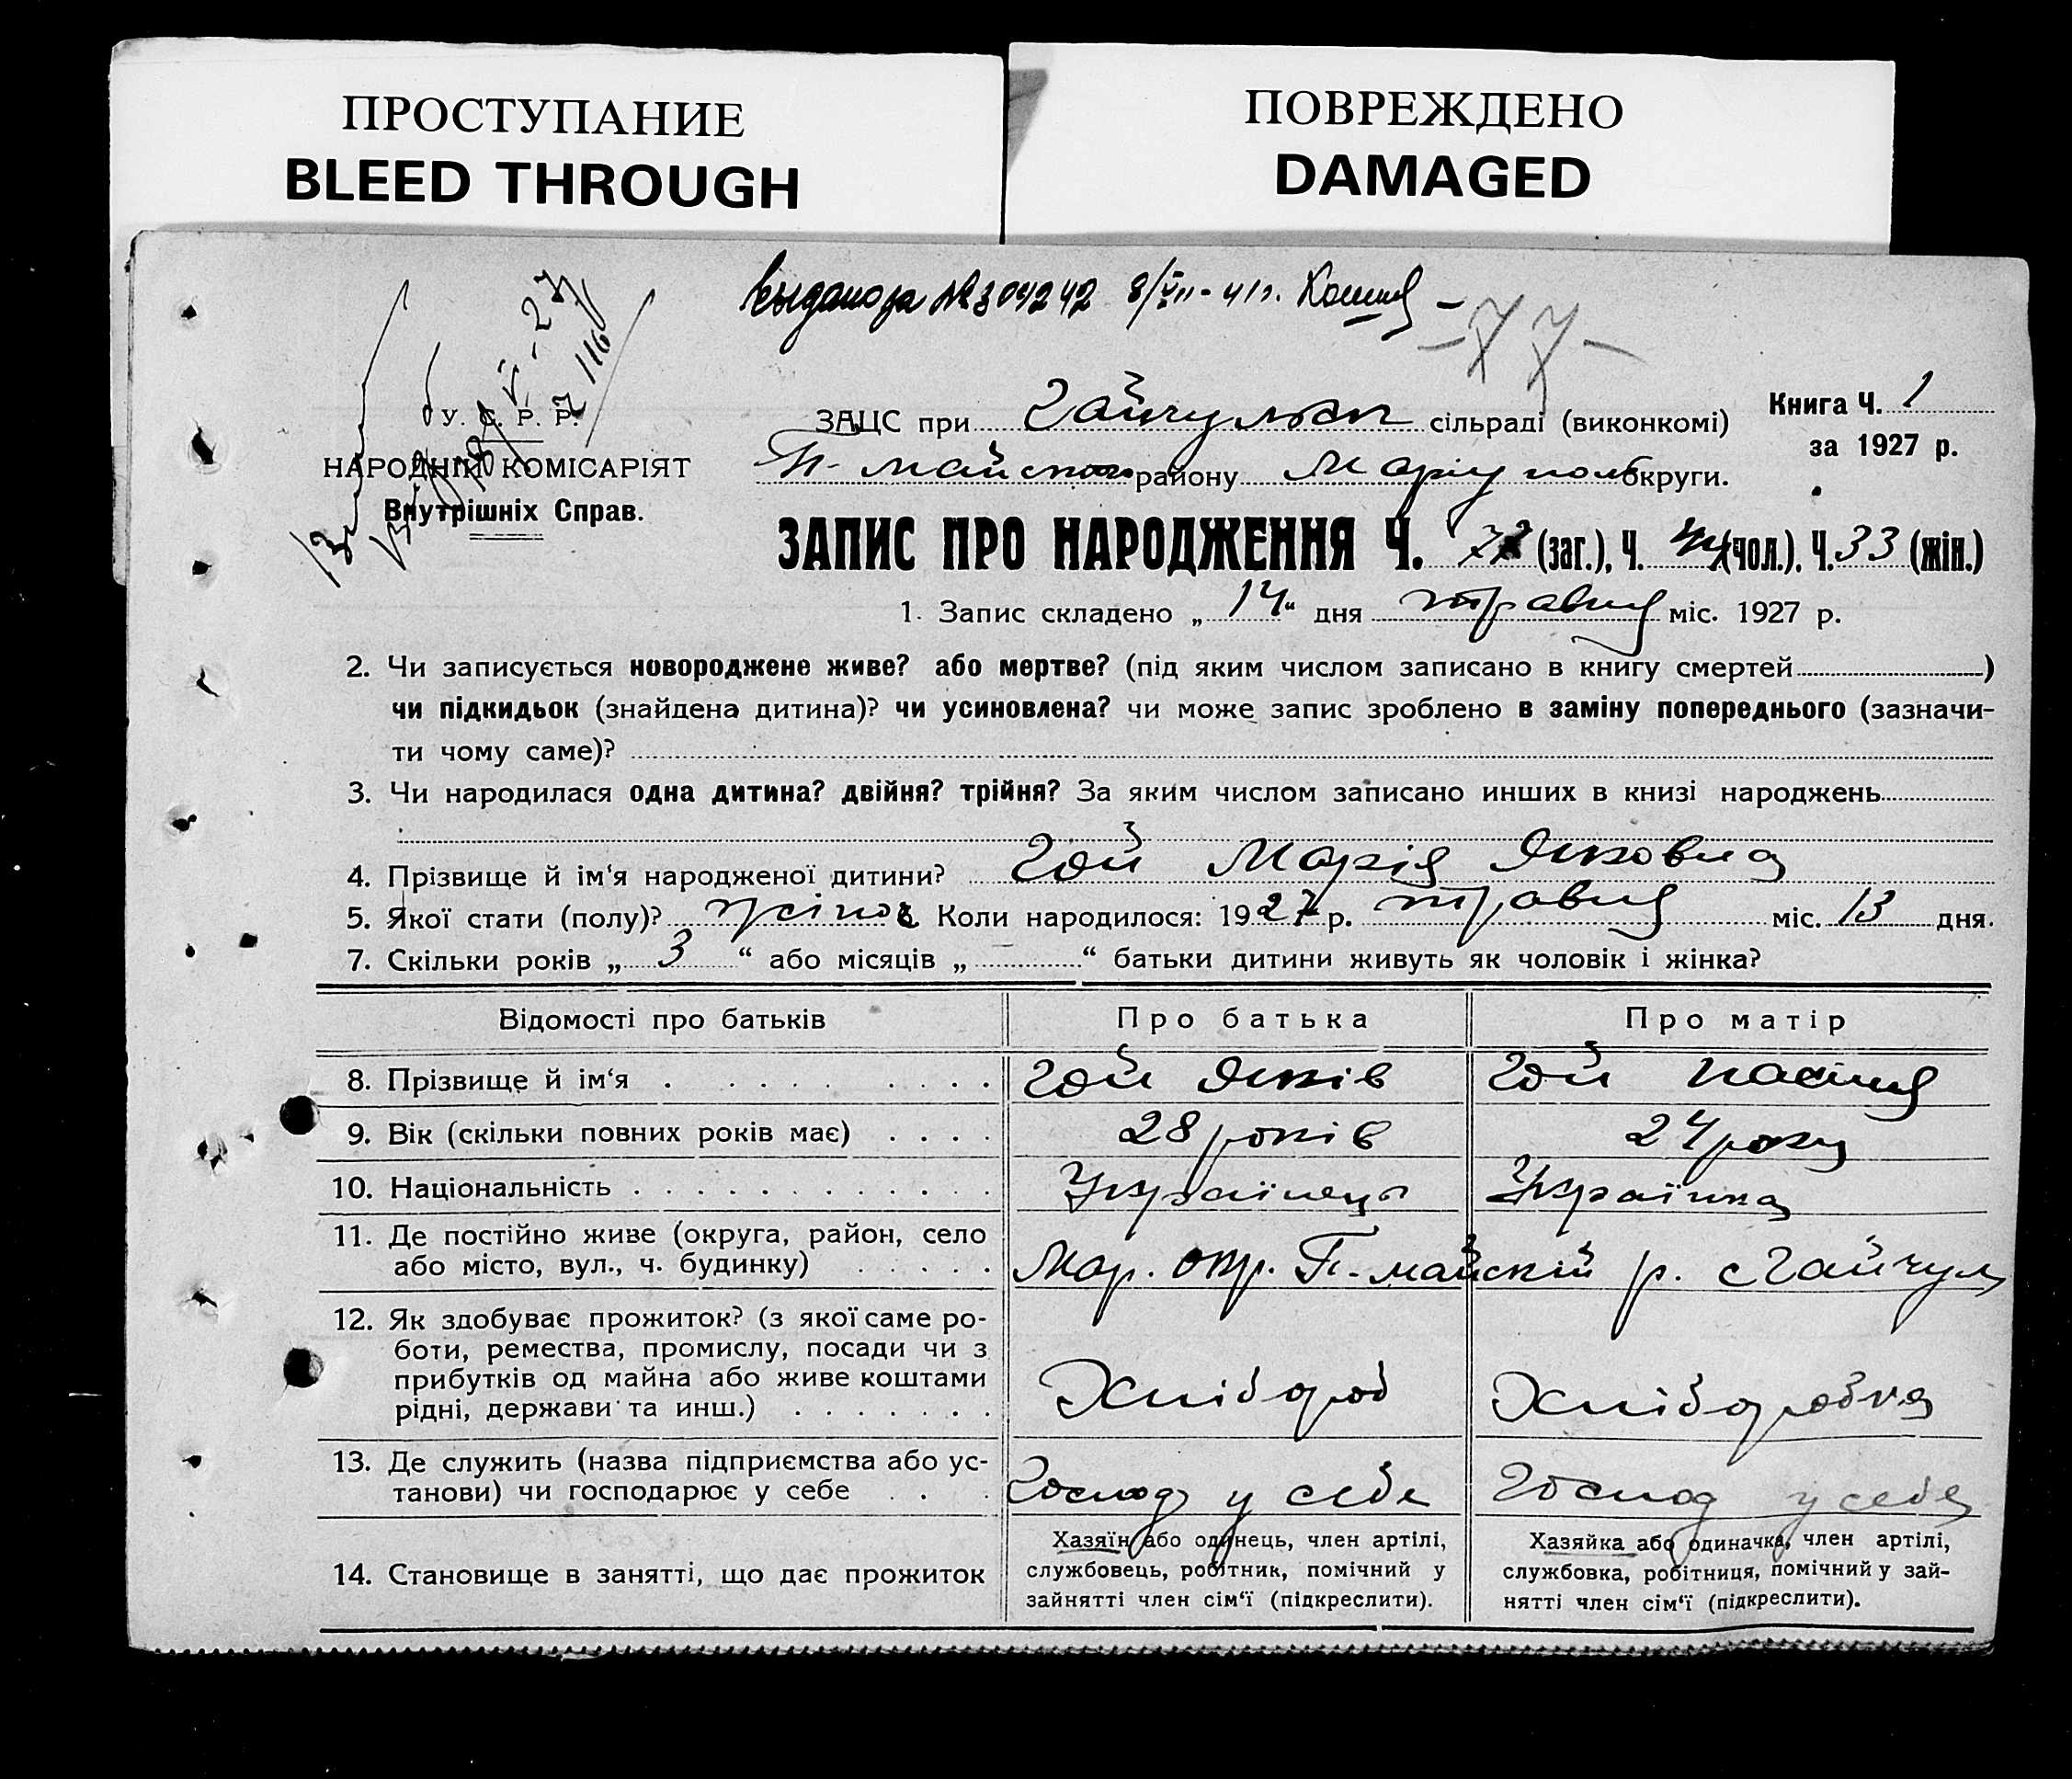 ПРОСТУПАНИЕ
BLEED THROUGH
ПОВРЕЖДЕНО
DAMAGED
Выдано за № 304242 8/VII-41 г.
-77-
У. С. Р. Р.
НАРОДНІЙ КОМІСАРІЯТ
Внутрішніх Справ.
ЗАЦС при Гайчульск сільраді (виконкомі)
П-майского району Маріупол округи.
Книга Ч. 1
за 1927 р.
ЗАПИС ПРО НАРОДЖЕННЯ Ч. 77 (заг.), Ч. 44 (чол.), Ч. 33 (жін.)
1. Запис складено „14“ дня травня міс. 1927 р.
2. Чи записується новороджене живе? або мертве? (під яким числом записано в книгу смертей)
чи підкидьок (знайдена дитина)? чи усиновлена? чи може запис зроблено в заміну попереднього (зазначи-
ти чому саме)?
3. Чи народилася одна дитина? двійня? трійня? За яким числом записано инших в книзі народжень
4. Прізвище й ім'я народженої дитини? Гой Марія Яковна
5. Якої стати (полу)? жіноч 6. Коли народилося: 1927 р. травня міс. 13 дня.
7. Скільки років „3“ або місяців „ “ батьки дитини живуть як чоловік і жінка?
Відомості про батьків Про батька Про матір
8. Прізвище й ім'я Гой Яків Гой
9. Вік (скільки повних років має) 28 років 24 роки
10. Національність Українець Українка
11. Де постійно живе (округа, район, село
або місто, вул., ч. будинку) Мар. окр. П-майскій р. с Гайчул
12. Як здобуває прожиток? (з якої саме ро-
боти, ремества, промислу, посади чи з
прибутків од майна або живе коштами
рідні, держави та инш.) Хлібороб Хліборобка
13. Де служить (назва підприємства або ус-
танови) чи господарює у себе Господ у себе Господ у себе
14. Становище в занятті, що дає прожиток
Хазяїн або одинець, член артілі,
службовець, робітник, помічний у
зайнятті член сім'ї (підкреслити).
Хазяйка або одиначка, член артілі,
службовка, робітниця, помічний у зай-
нятті член сім'ї (підкреслити).